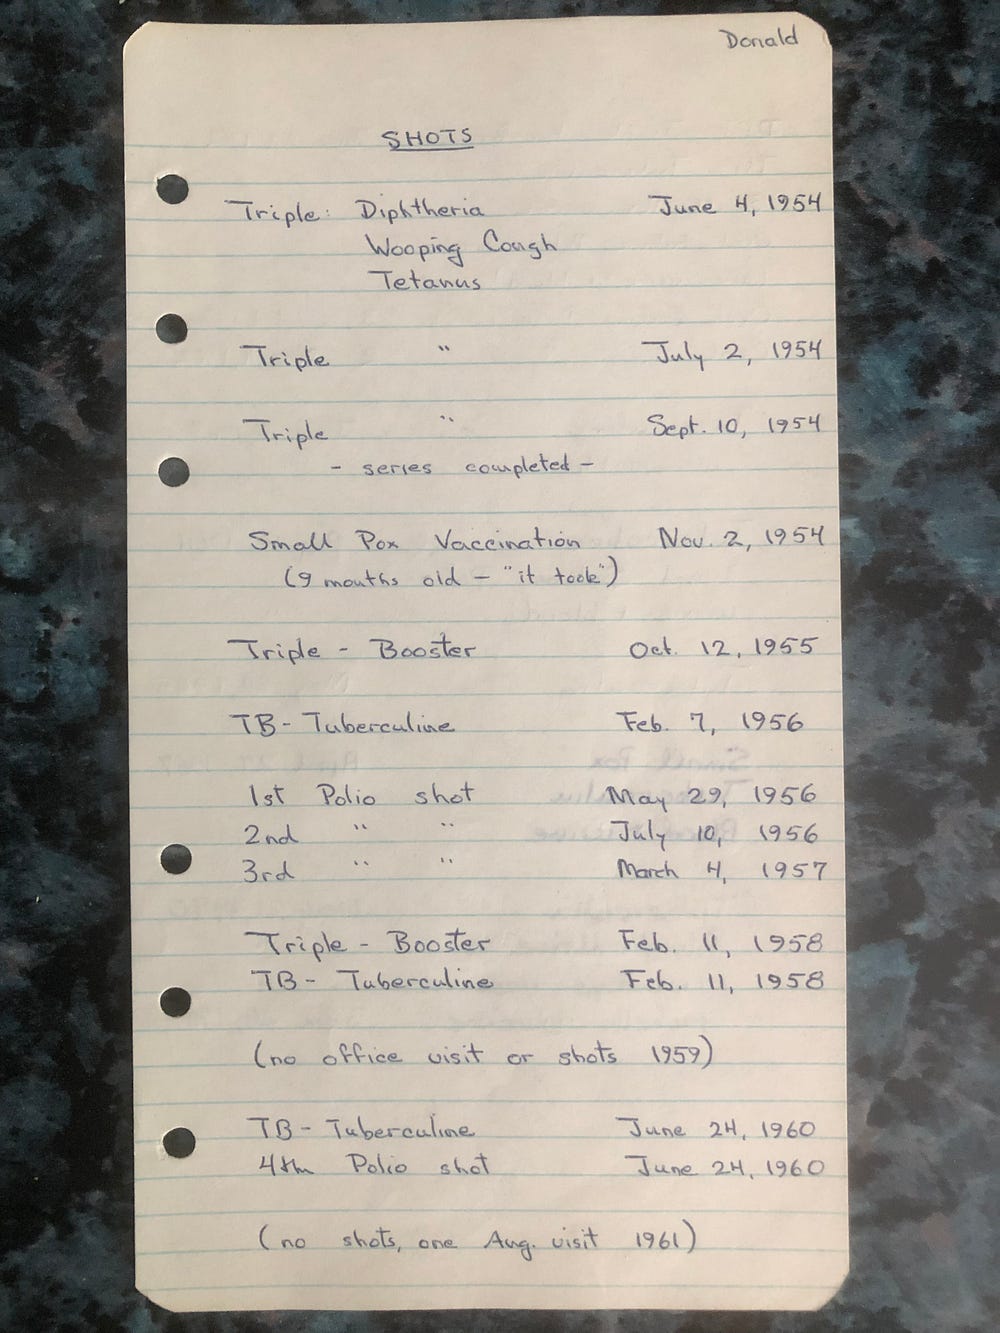 Donald
SHOTS
Triple: Diphtheria June 4, 1954
Wooping Cough
Tetanus
Triple " July 2, 1954
Triple " Sept. 10, 1954
- series completed -
Small Pox Vaccination Nov. 2, 1954
(9 months old - "it took")
Triple - Booster Oct. 12, 1955
TB - Tuberculine Feb. 7, 1956
1st Polio shot May 29, 1956
2nd " " July 10, 1956
3rd " " March 4, 1957
Triple - Booster Feb. 11, 1958
TB - Tuberculine Feb. 11, 1958
(no office visit or shots 1959)
TB - Tuberculine June 24, 1960
4th Polio shot June 24, 1960
(no shots, one Aug. visit 1961)